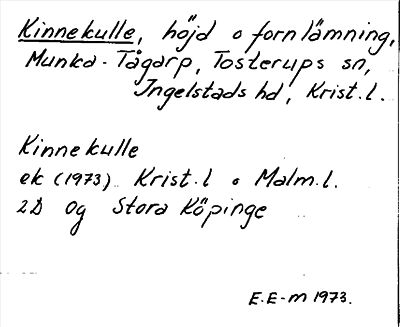 Kinnekulle, höjd o fornlämning,
Munka-Tågarp, Tosterups sn,
Ingelstads hd, Krist.l.
Kinnekulle
ek (1973) Krist.l o Malm.l.
2D 0g Stora Köpinge
E.E-m 1973.